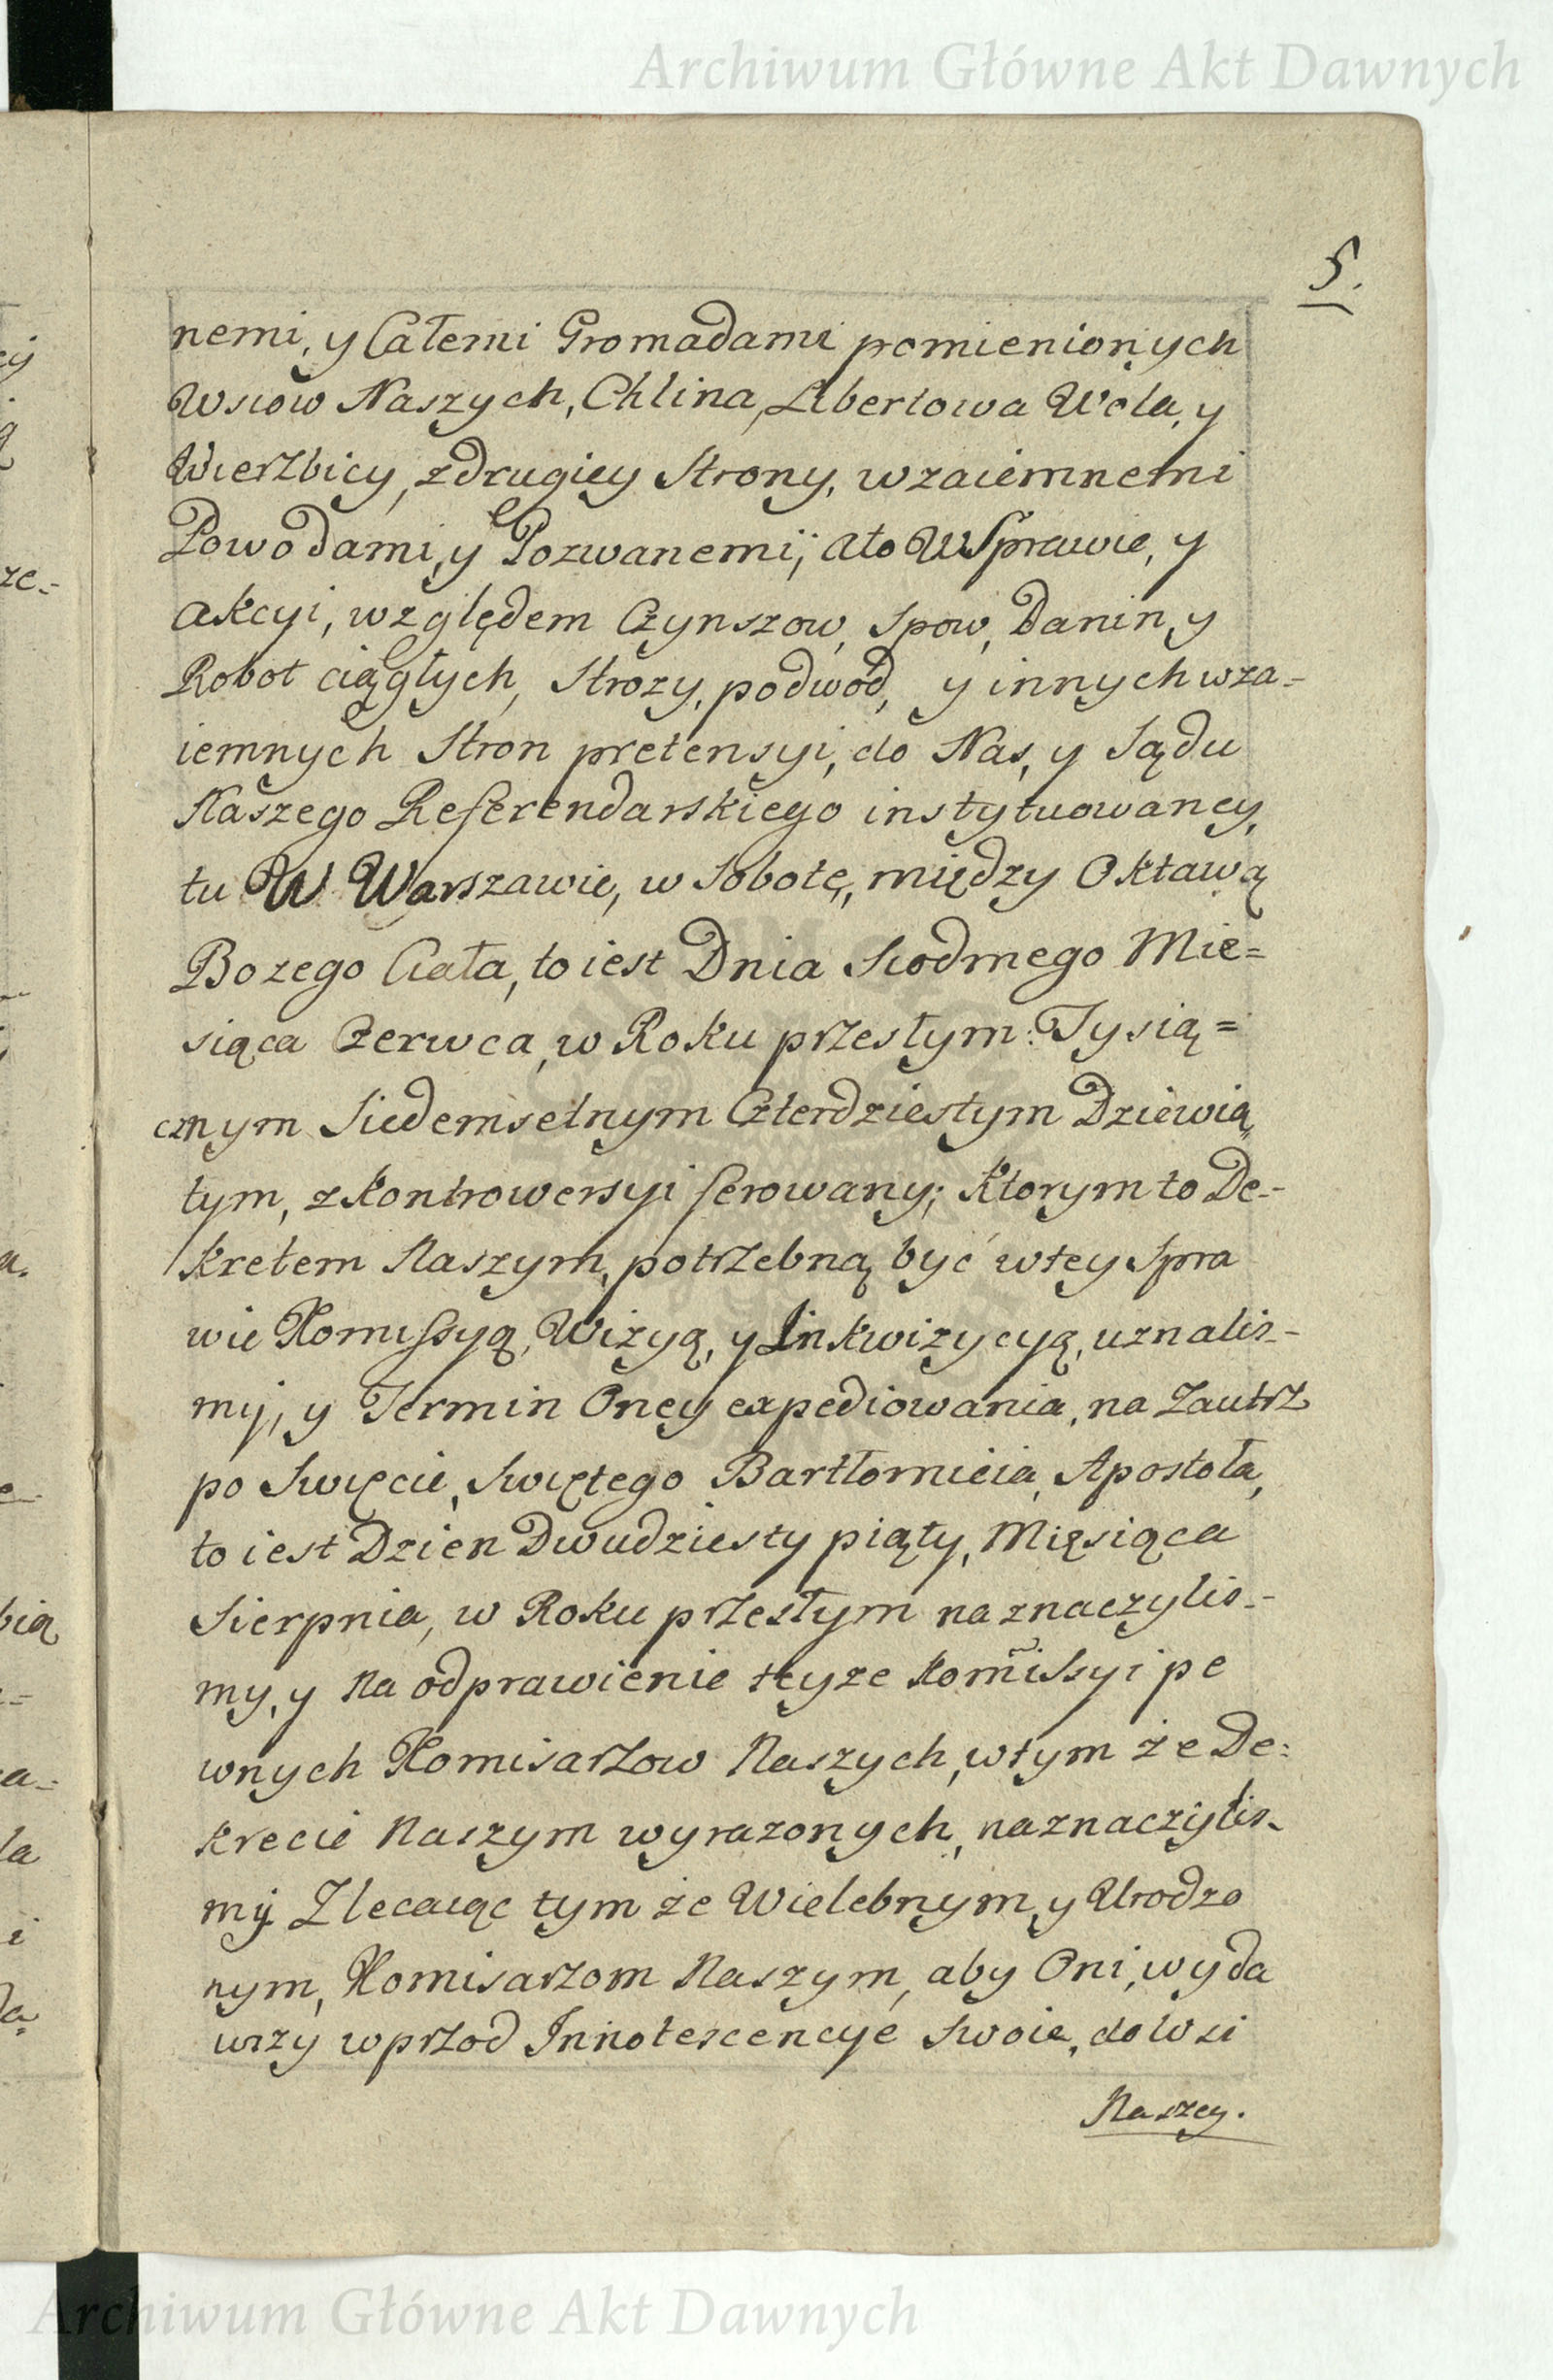 Archiwum Główne Akt Dawnych
5.
nemi, y Całemi Gromadami pomienionych
Wsiow Naszych, Chlina, Libertowa Wola, y
Wierzbicy, z drugiey Strony, wzaiemnemi
Powodami, y Pozwanemi, ato w Sprawie, y
Akcyi, względem Czynszow, Spow, Danin, y
Robot ciągłych, Strozy, podwod, y innych wza-
iemnych Stron pretensyi, do Nas, y Sądu
Naszego Referendarskiego instytuowaney,
tu W Warszawie, w Sobotę, między Oktawą
Bozego Ciała, to iest Dnia Siodmego Mie=
siąca Czerwca, w Roku przesłym Tysią=
cznym Siedemsetnym Czterdziestym Dziewią
tym, z kontrowersyi ferowany; Ktorym to De-
kretem Naszym, potrzebną być wtey Spra
wie Komissyą, Wizyą, y Inkwizycyą, uznalis-
my, y Termin Oney expediowania, na Zautrz
po Swięcie, Swiętego Bartłomieia, Apostoła,
to iest Dzien Dwudziesty piąty, Mięsiąca
Sierpnia, w Roku przesłym naznaczylis-
my, y Na odprawienie teyze Kom̃issyi pe
wnych Komisarzow Naszych, wtym że De=
krecie Naszym wyrazonych, naznaczylis-
my Zlecaiąc tym że Wielebnym, y Urodzo
nym, Komisarzom Naszym, aby Oni, wyda
wszy wprzod Innotescencye Swoie, do Wsi
Naszey.
Archiwum Główne Akt Dawnych